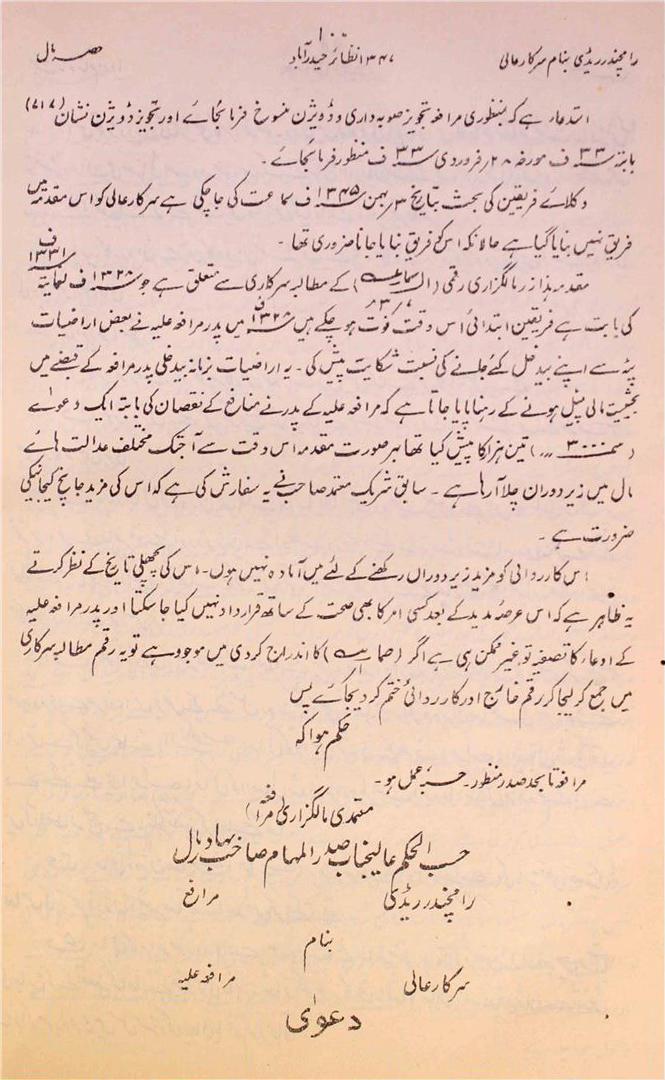 ۱۰۰
رامچندر ریڈی بنام سرکار عالی ۱۳۴۷ نظائر حیدرآباد حصہ مال
استدعا ہے کہ بمنظوری مرافعہ تجویز صوبہ داری و ڈویژن منسوخ فرمائی جائے اور تجویز ڈویژن نشان (۷۱۷)
بابتہ ۳۳ ف مورخہ ۲۸ فروردی ۳۳ ف منظور فرمائی جائے۔
وکلائے فریقین کی بحث بتاریخ ۳ بہمن ۱۳۴۵ ف سماعت کی جاچکی ہے سرکار عالی کو اس مقدمہ میں
فریق نہیں بنایا گیا ہے حالانکہ اسکو فریق بنایا جانا ضروری تھا۔
مقدمہ ہذا زر مالگزاری رقمی کے مطالبہ سرکاری سے متعلق ہے جو ۱۳۲۸ ف لغایتہ ۱۳۳۱ ف
کی بابت ہے فریقین ابتدائی اس وقت فوت ہوچکے ہیں ۱۳۲۸ ف میں پدر مرافعہ علیہ نے بعض اراضیات
پٹہ سے اپنے بیدخل کئے جانے کی نسبت شکایت پیش کی۔ یہ اراضیات بزمانہ بیدخلی پدر مرافعہ کے قبضے میں
بحیثیت مالی پٹیل ہونے کے رہنا پایا جاتا ہے کہ مرافعہ علیہ کے پدر نے منافع کے نقصان کی بابتہ ایک دعوے
(۳۰۰۰) تین ہزار کا پیش کیا تھا بہر صورت مقدمہ اس وقت سے آجتک مختلف عدالت ہائے
مال میں زیر دوران چلا آرہا ہے۔ سابق شریک معتمد صاحب نے یہ سفارش کی ہے کہ اس کی مزید جانچ کیجانیکی
ضرورت ہے۔
اس کارروائی کو مزید زیر دوراں رکھنے کے لئے میں آمادہ نہیں ہوں۔ اس کی پچھلی تاریخ کے نظر کرتے
یہ ظاہر ہے کہ اس عرصہ مدید کے بعد کسی امر کا بھی صحت کے ساتھ قرارداد نہیں کیا جاسکتا اور پدر مرافعہ علیہ
کے ادعا کا تصفیہ تو غیر ممکن ہی ہے اگر کا اندراج کردی میں موجود ہے تو یہ رقم مطالبہ سرکاری
میں جمع کرلیجا کر رقم خارج اور کارروائی ختم کردیجائے پس
حکم ہوا کہ
مرافعہ تا بحد صدر منظور۔ حسبہ عمل ہو۔
معتمدی مالگزاری (مرافعہ)
حسب الحکم عالیجناب صدر المہام صاحب بہادر مال
رامچندر ریڈی مرافع
بنام
سرکار عالی مرافعہ علیہ
دعویٰ